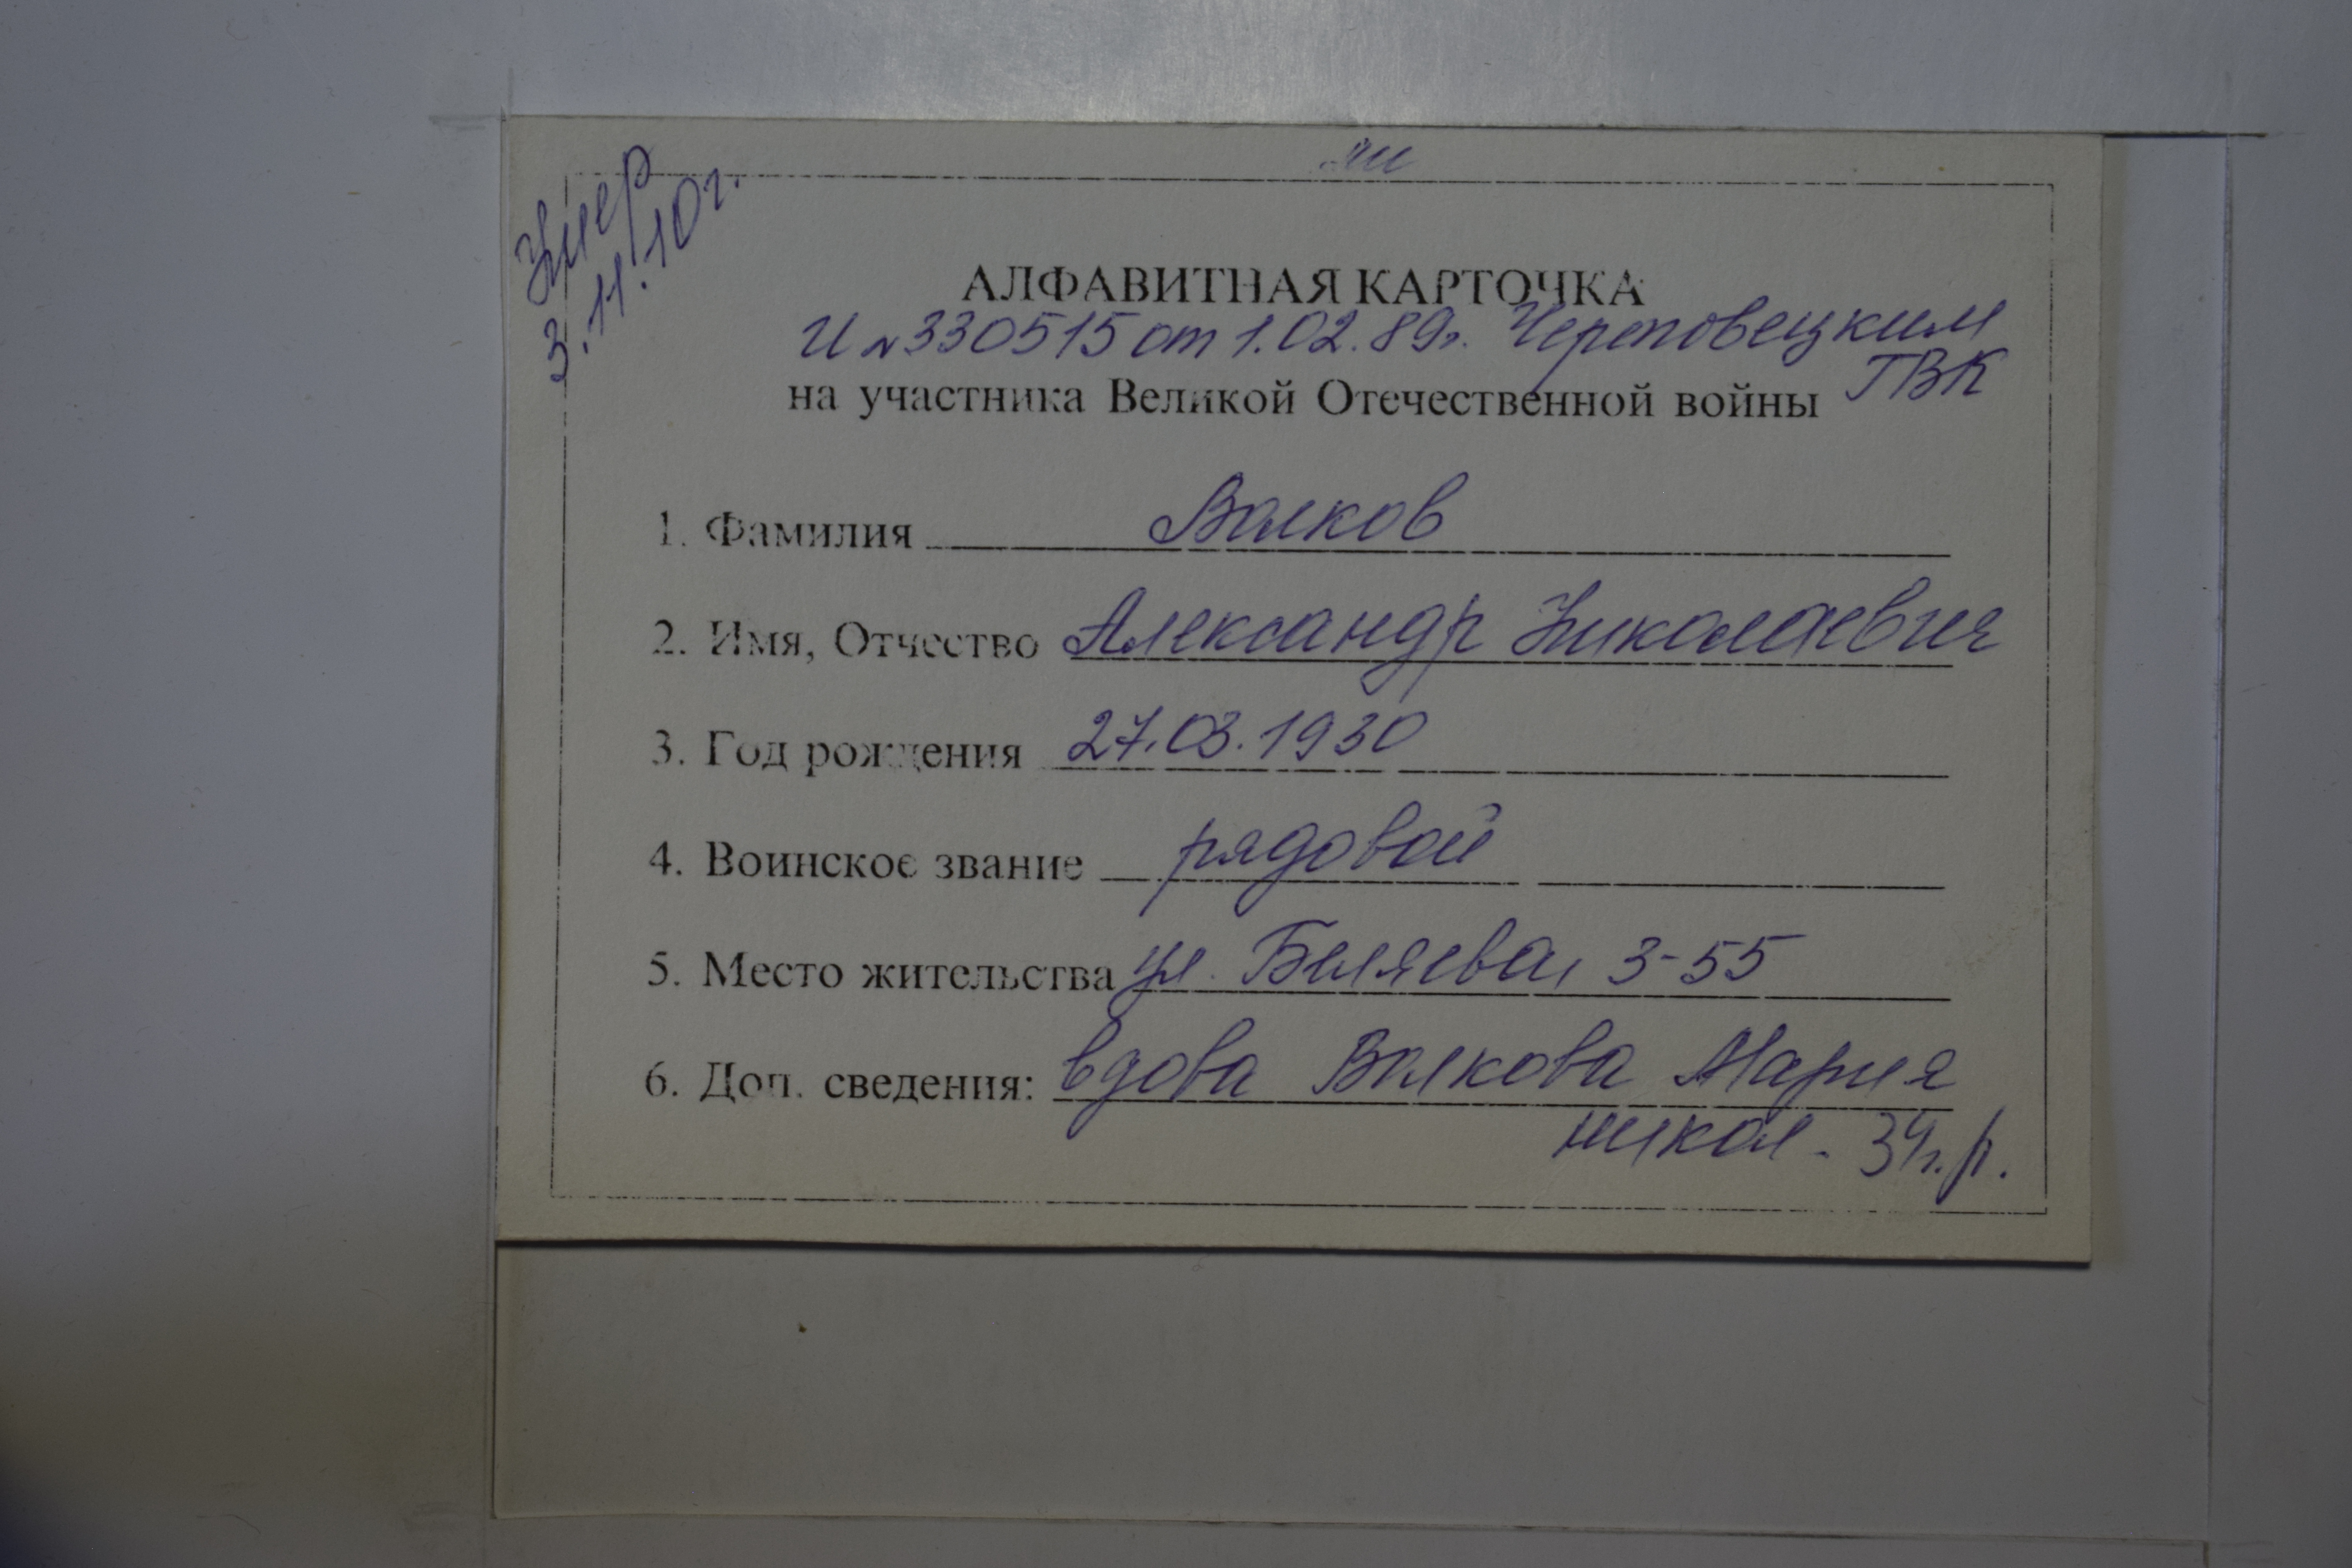 Умер
3.11.10г.
АЛФАВИТНАЯ КАРТОЧКА
И №330515 от 1.02.89г. Череповецким
ГВК
на участника Великой Отечественной войны
1. Фамилия Волков
2. Имя, Отчество Александр Николаевич
3. Год рождения 27.03.1930
4. Воинское звание рядовой
5. Место жительства ул. Беляева, 3-55
6. Доп. сведения: вдова Волкова Мария
никол. 34г.р.